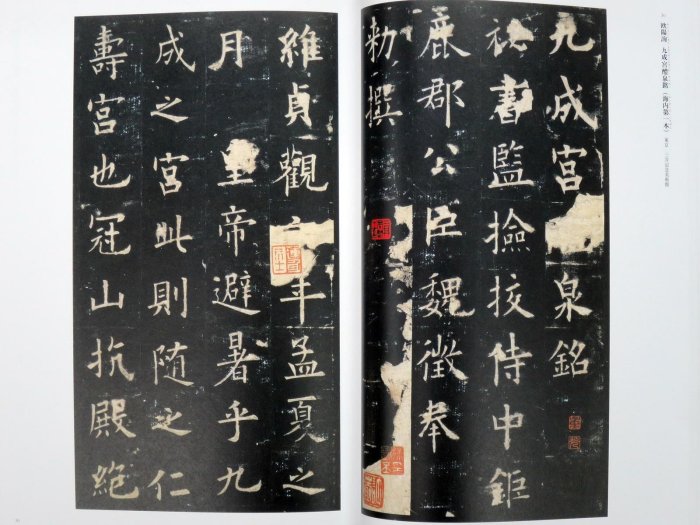 欧陽詢 九成宮醴泉銘(海内第一本) 東京 三井記念美術館
九成宮 泉銘
祕書監撿挍侍中鉅
鹿郡公臣魏徵奉
勑撰
維貞觀 年孟夏之
月 皇帝避暑乎九
成之宮此則随之仁
壽宮也冠山抗殿絕